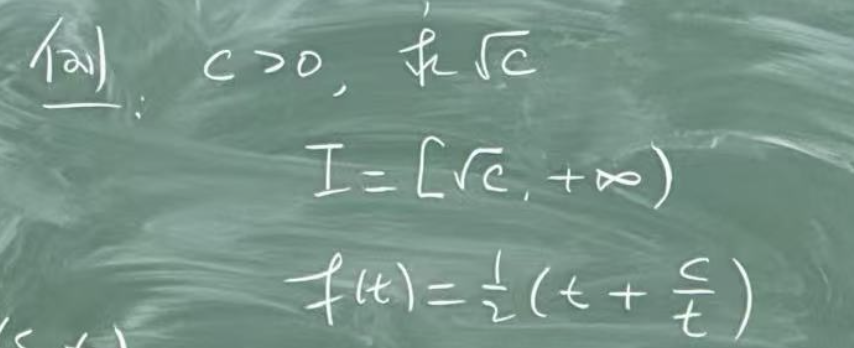 例: c>0, 求 √c
I = [√c, +∞)
f(t) = 1/2 (t + c/t)